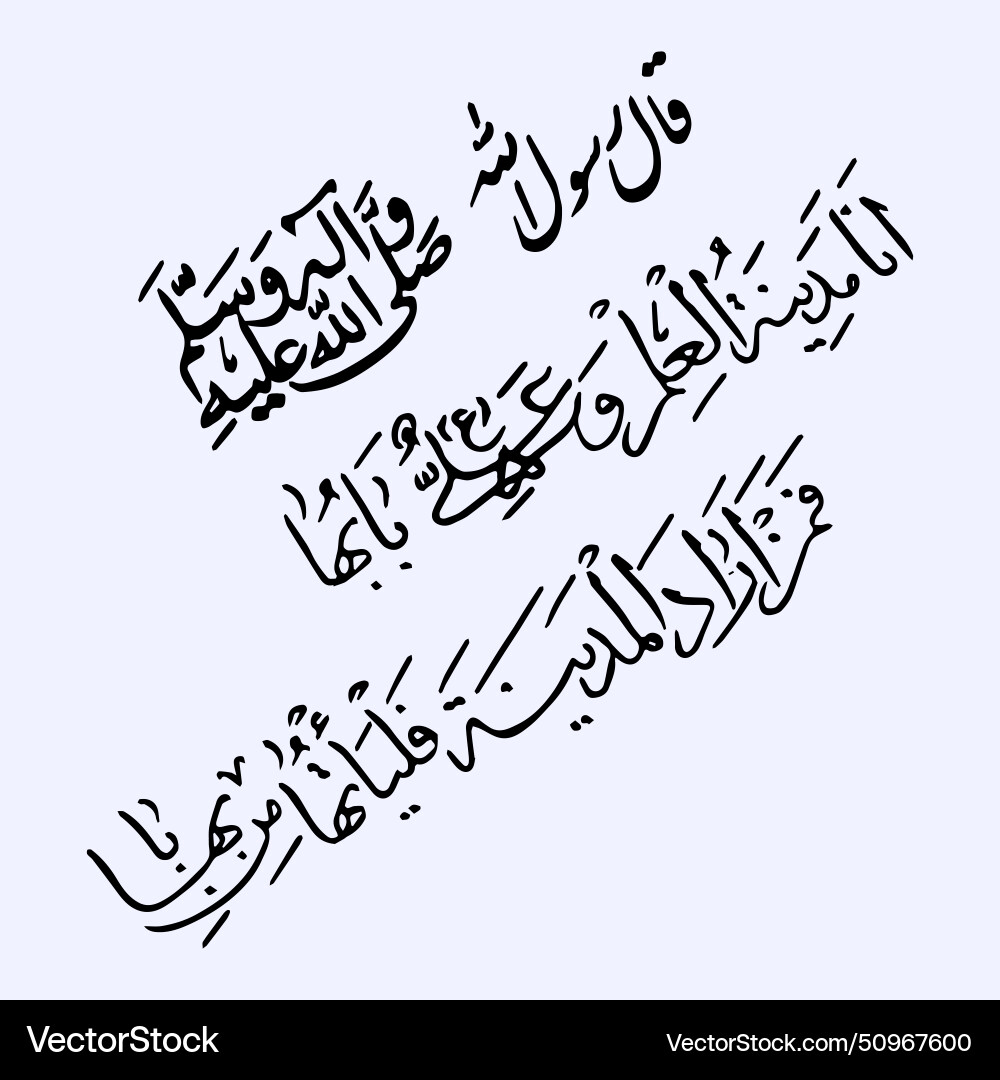 قال رسول الله
صلى الله عليه وآله وسلم
أنا مدينة العلم وعلي بابها
فمن أراد المدينة فليأتها من بابها
VectorStock
VectorStock.com/50967600